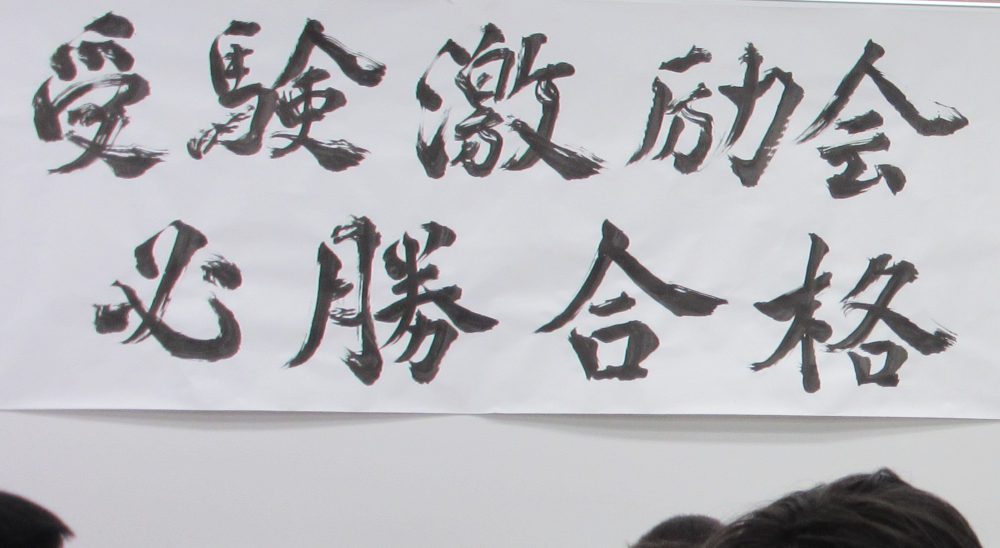 受験激励会
必勝合格